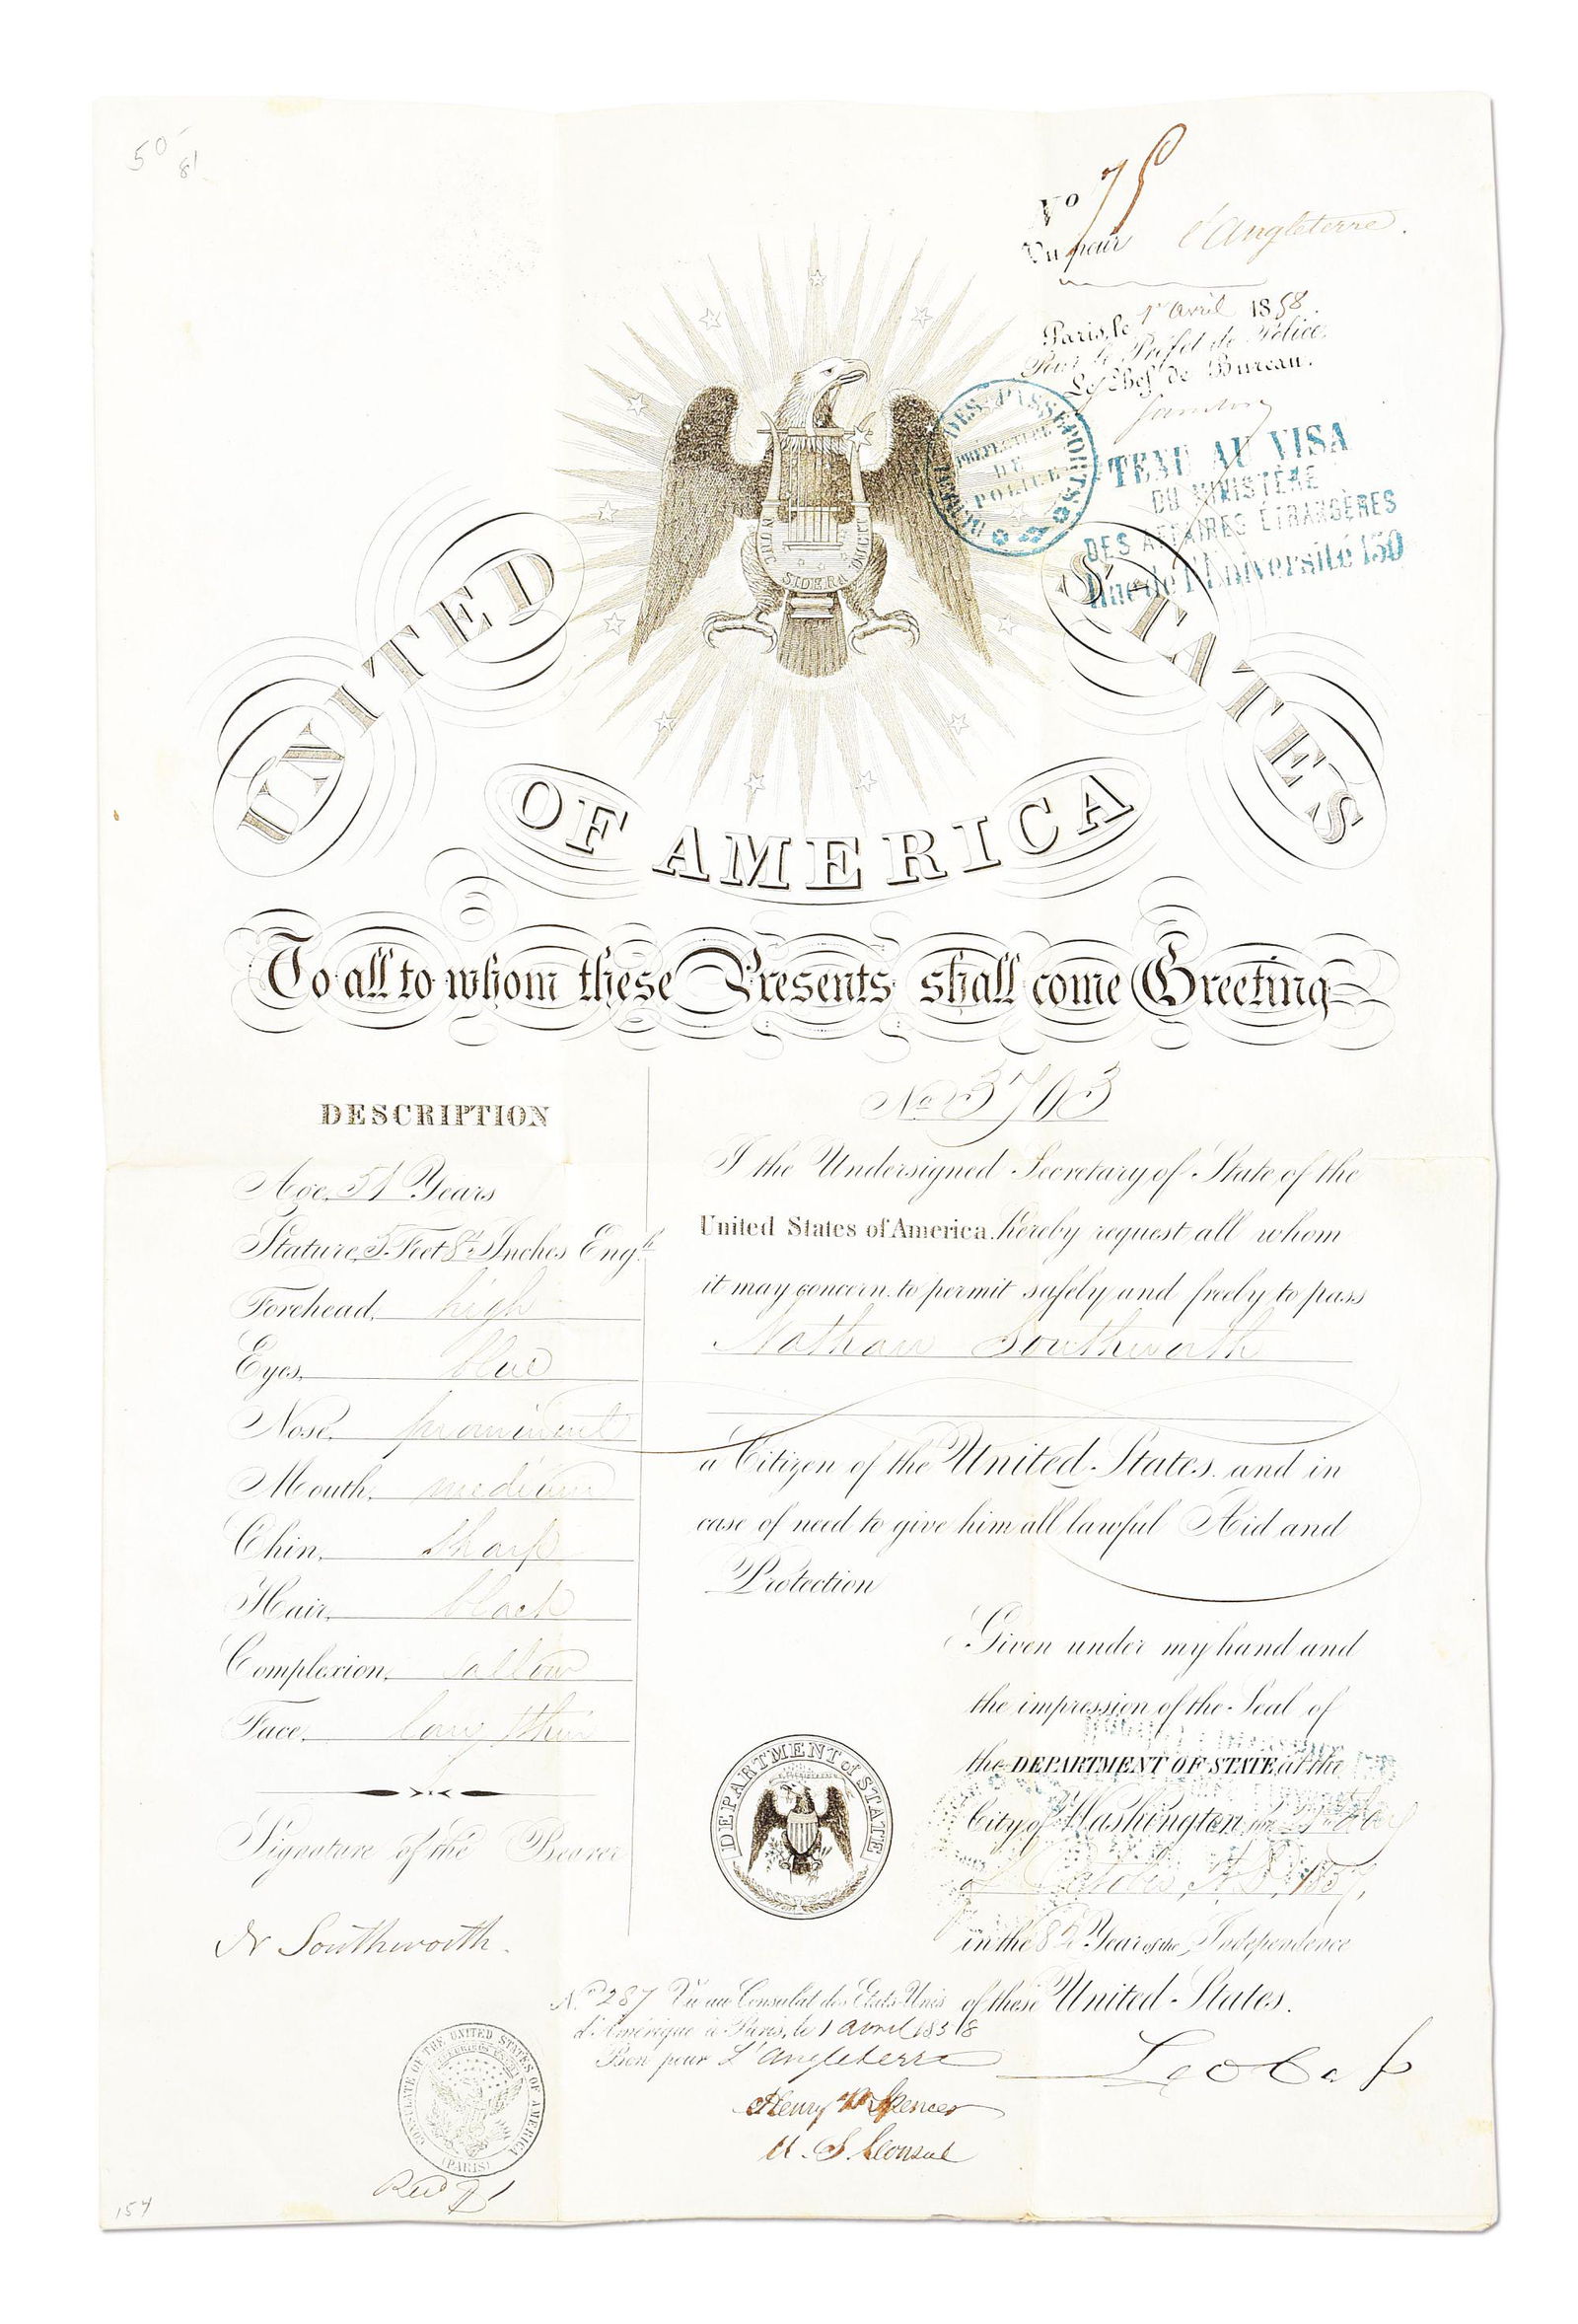 50 81
No 75
Vu pour l'Angleterre.
Paris, le 1er avril 1858.
Pour le Préfet de Police,
Le Chef de Bureau.
BUREAU DES PASSEPORTS
PRÉFECTURE
DE
POLICE
TENU AU VISA
DU MINISTÈRE
DES AFFAIRES ÉTRANGÈRES
Rue de l'Université 130
SIDERA
UNITED STATES
OF AMERICA
To all to whom these Presents shall come Greeting
DESCRIPTION
Age, Years
Stature, 5 Feet 8 Inches Engh
Forehead, high
Eyes, blue
Nose, prominent
Mouth, medium
Chin, sharp
Hair, black
Complexion, sallow
Face, long thin
Signature of the Bearer
N Southworth.
No 3703
I the Undersigned Secretary of State of the
United States of America, hereby request all whom
it may concern, to permit safely and freely to pass
Nathan Southworth
a Citizen of the United States, and in
case of need to give him all lawful Aid and
Protection
Given under my hand and
the impression of the Seal of
the DEPARTMENT OF STATE, at the
City of Washington, the day
of October A.D. 1857,
in the 82 Year of the Independence
of these United States.
DEPARTMENT of STATE
No. 287 Vu au Consulat des Etats-Unis
d'Amérique à Paris, le 1 avril 1858
Bon pour L'Angleterre
Henry W Spencer
U. S. Consul
CONSULATE OF THE UNITED STATES OF AMERICA
(PARIS)
154